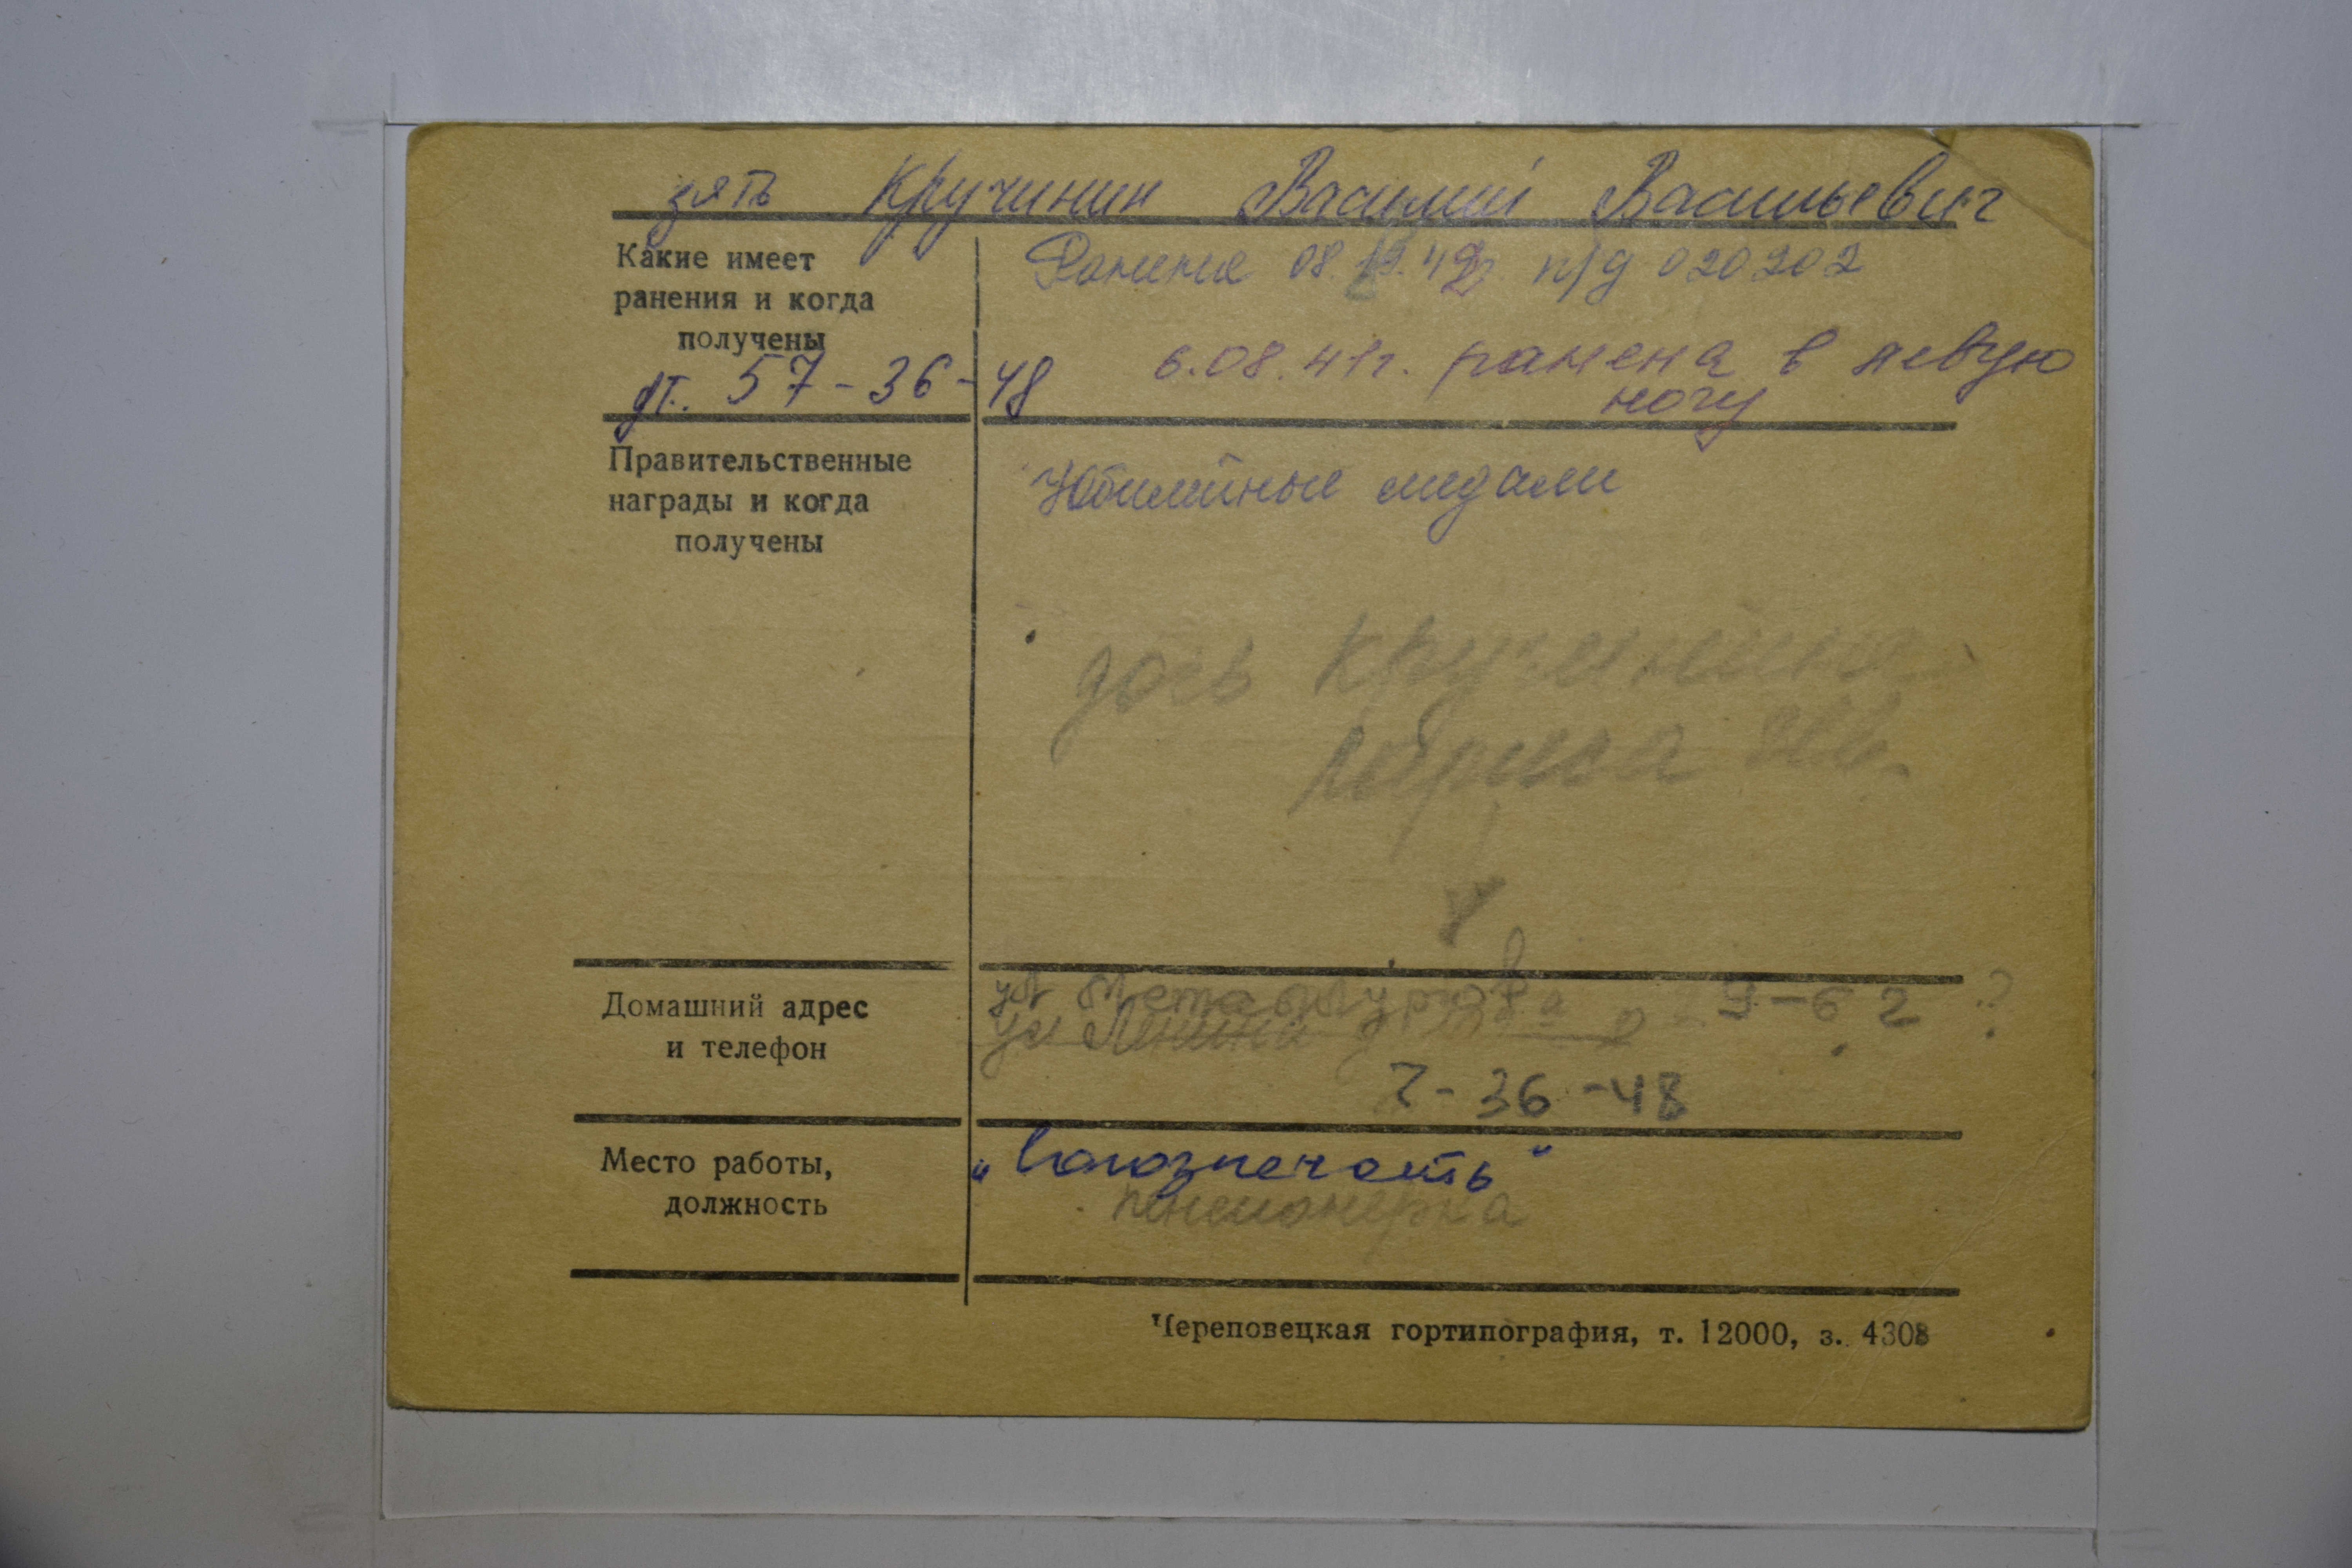 зять Кручинин Василий Васильевич
Какие имеет
ранения и когда
получены
дт. 57-36-48
Ранение 08. 42 п/д 020202
6.08.41г. ранена в левую
ногу
Правительственные
награды и когда
получены
Юбилейные медали
дочь Кручинина
Лариса Ив.
Домашний адрес
и телефон
ул Металлургов 29-62 ?
ул Ленина
7-36-48
Место работы,
должность
"Союзпечать"
пенсионерка
Череповецкая гортипография, т. 12000, з. 4308